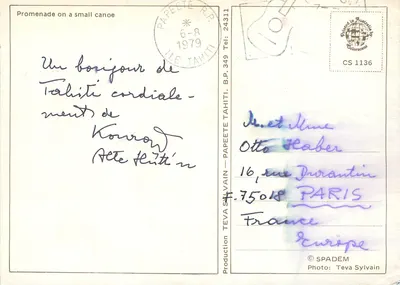 Promenade on a small canoe
PAPEETE R.P.
6-8
1979
ILE TAHITI
CS 1136
Un bonjour de
Tahiti cordiale-
ment de
Konrad
Production TEVA SYLVAIN — PAPEETE TAHITI. B.P. 349 Tél: 24311
M. et Mme
Otto Haber
16, rue Durantin
F. 75018 PARIS
France
Europe
© SPADEM
Photo: Teva Sylvain